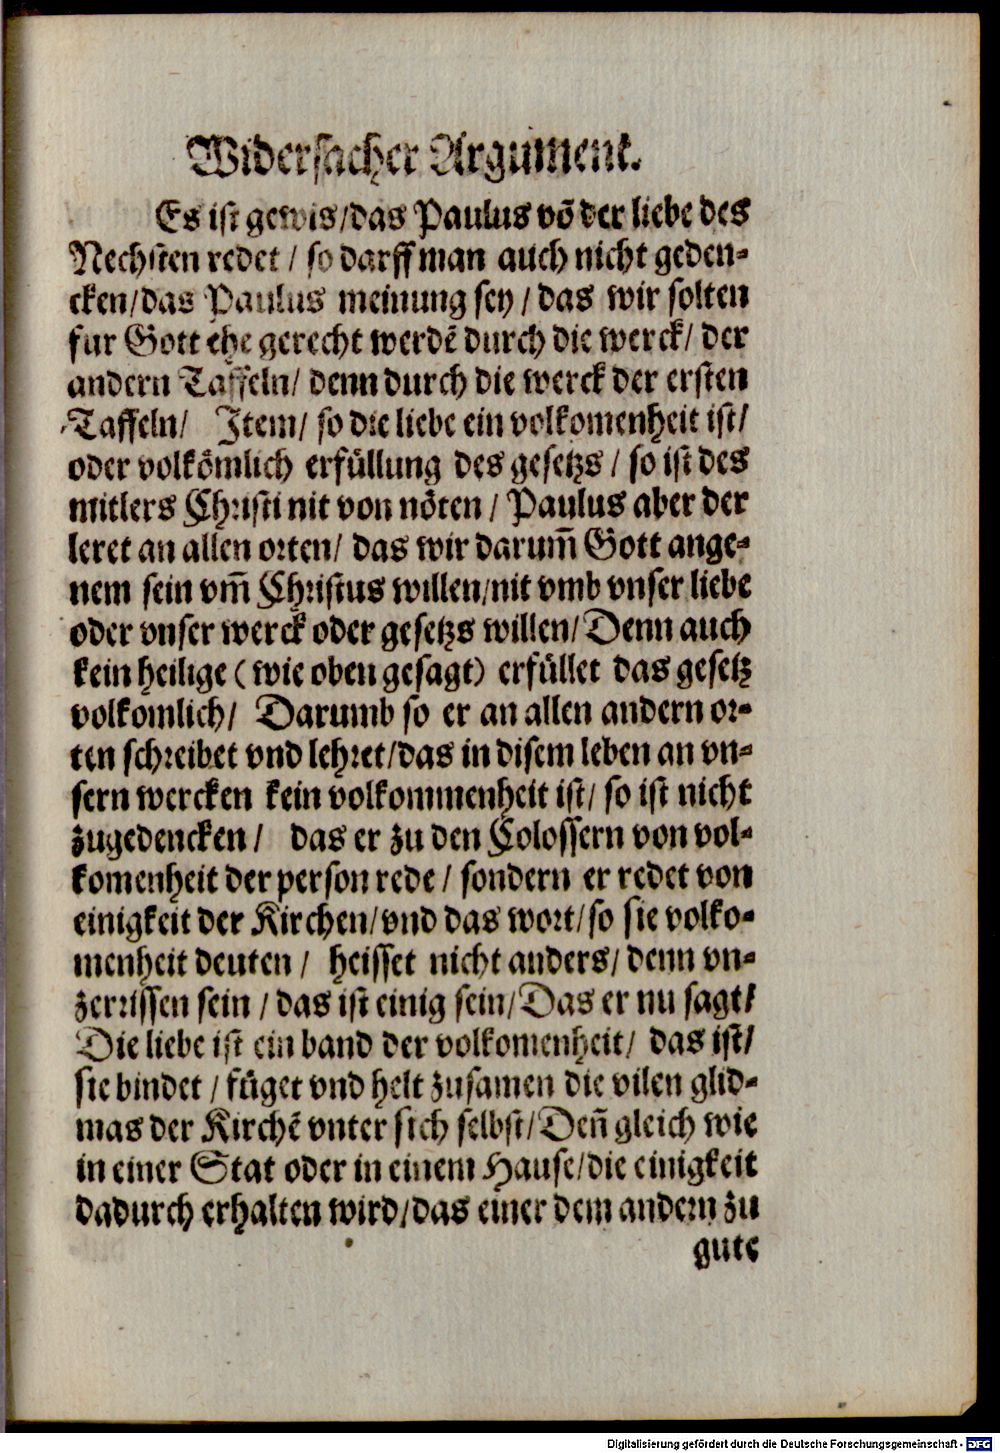 Widersacher Argument.
Es ist gewis/das Paulus võ der liebe des
Nechsten redet / so darff man auch nicht geden-
cken/das Paulus meinung sey / das wir solten
fur Gott ehe gerecht werdẽ durch die werck/ der
andern Taffeln/ denn durch die werck der ersten
Taffeln/ Item/ so die liebe ein volkomenheit ist/
oder volkömlich erfüllung des gesetzs / so ist des
mitlers Christi nit von nöten / Paulus aber der
leret an allen orten/ das wir darum̃ Gott ange-
nem sein vm̃ Christus willen/nit vmb vnser liebe
oder vnser werck oder gesetzs willen/ Denn auch
kein heilige ( wie oben gesagt) erfüllet das gesetz
volkomlich/ Darumb so er an allen andern or-
ten schreibet vnd lehret/das in disem leben an vn-
sern wercken kein volkommenheit ist/ so ist nicht
zugedencken / das er zu den Colossern von vol-
komenheit der person rede / sondern er redet von
einigkeit der Kirchen/vnd das wort/so sie volko-
menheit deuten / heisset nicht anders/ denn vn-
zerrissen sein / das ist einig sein/Das er nu sagt/
Die liebe ist ein band der volkomenheit/ das ist/
sie bindet / füget vnd helt zusamen die vilen glid-
mas der Kirchẽ vnter sich selbst/Deñ gleich wie
in einer Stat oder in einem Hause/die einigkeit
dadurch erhalten wird/das einer dem andern zu
gute
Digitalisierung gefördert durch die Deutsche Forschungsgemeinschaft - DFG